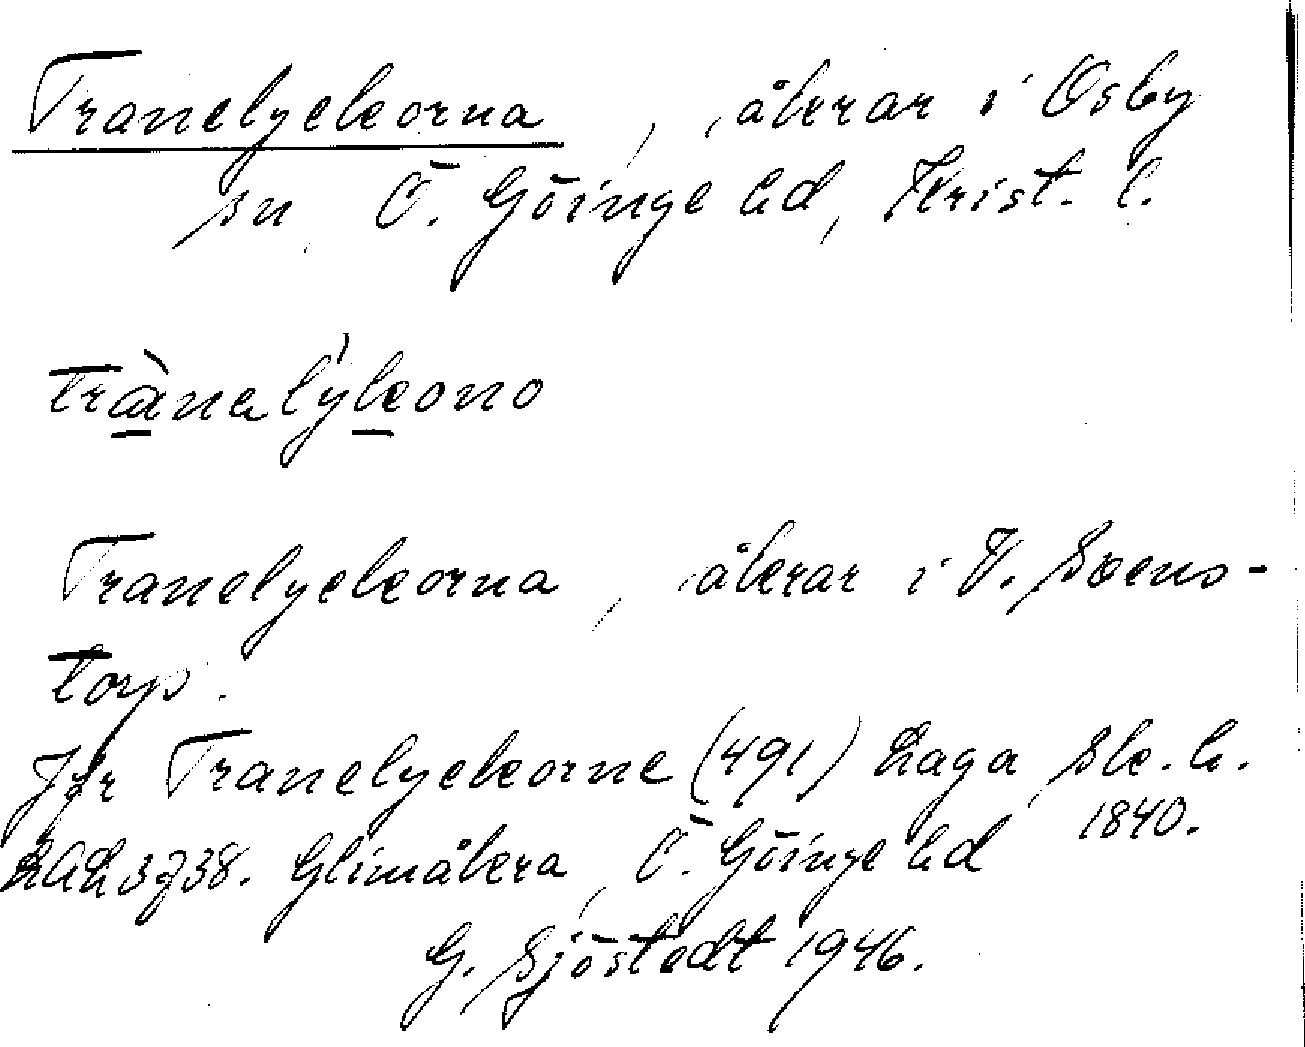 Tranelyckorna, åkrar i Osby
sn, Ö. Göinge hd, Krist. l.
trànalýkono
Tranelyckorna, åkrar i V. Svens-
torp.
Jfr Tranelyckorne (491) Laga Sk. h.
1840.
Glimåkra, Ö. Göinge hd
G. Sjöstedt 1946.